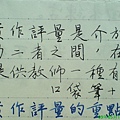 作評量是介於
二者之間，在
是供教師一種有
口袋筆+
作評量的重點